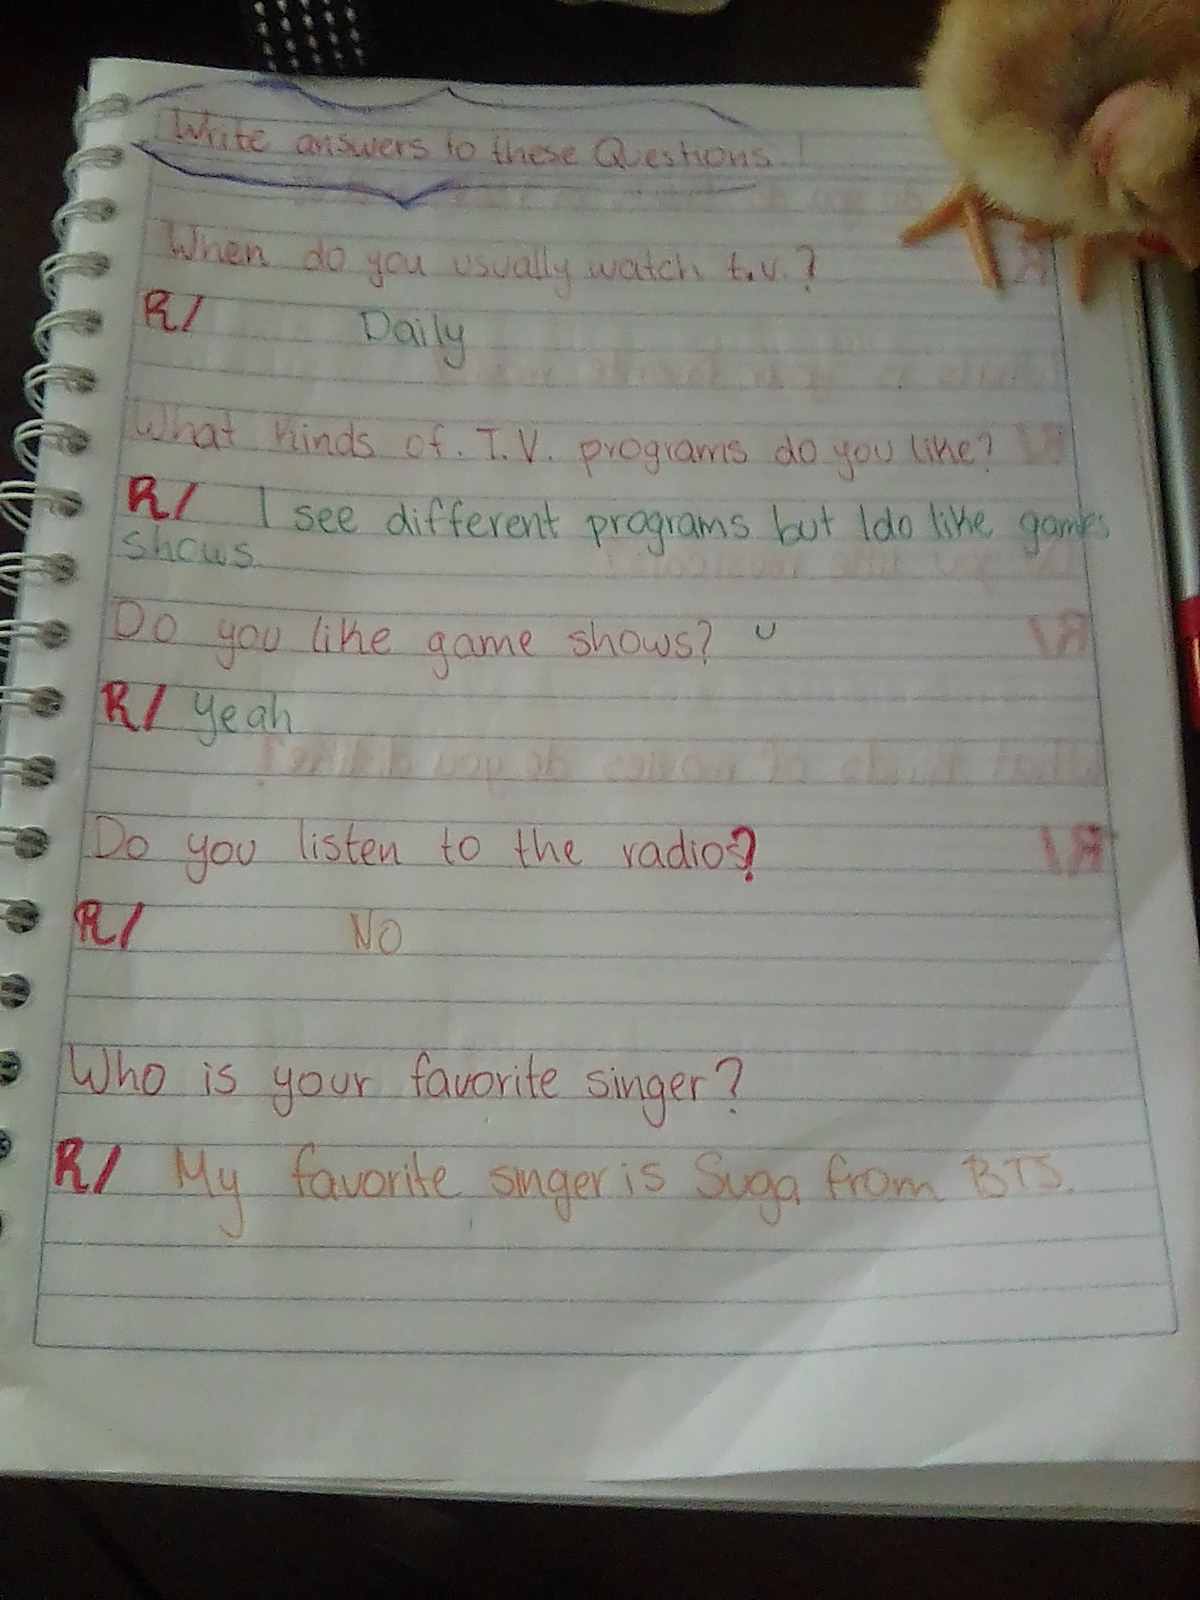 Write answers to these Questions!
When do you usually watch t.v.?
R/ Daily
What kinds of. T.V. programs do you like?
R/ I see different programs but I do like games
shows.
Do you like game shows?
R/ Yeah
Do you listen to the radio?
R/ NO
Who is your favorite singer?
R/ My favorite singer is Suga from BTS.